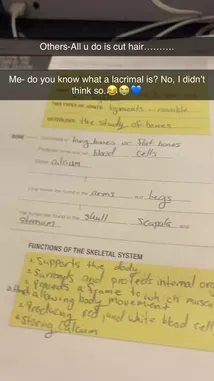 Others-All u do is cut hair..........
Me- do you know what a lacrimal is? No, I didn't
think so.😂😭💙
ligaments movable
the study of bones
BONE
long bones or flat bones
blood cells
calcium
Long bones are found in the arms and legs
Flat bones are found in the skull scapula and
sternum
FUNCTIONS OF THE SKELETAL SYSTEM
1. Supports the body
2. Surrounds and protects internal org
3. Provides a frame to which muscle
allowing body movement
4. Producing red and white blood cell
5. Storing calcium